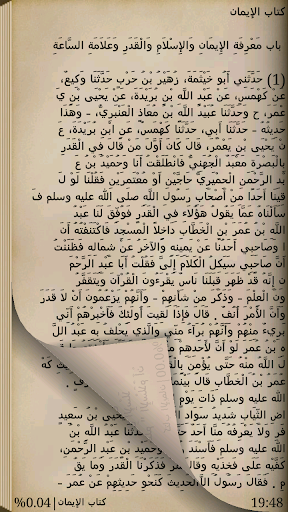 كتاب الإيمان
باب مَعْرِفَةِ الإِيمَانِ وَالإِسْلاَمِ وَالْقَدَرِ وَعَلاَمَةِ السَّاعَةِ
(1) حَدَّثَنِي أَبُو خَيْثَمَةَ، زُهَيْرُ بْنُ حَرْبٍ حَدَّثَنَا وَكِيعٌ،
عَنْ كَهْمَسٍ، عَنْ عَبْدِ اللَّهِ بْنِ بُرَيْدَةَ، عَنْ يَحْيَى بْنِ يَ
عْمَرَ، ح وَحَدَّثَنَا عُبَيْدُ اللَّهِ بْنُ مُعَاذٍ الْعَنْبَرِيُّ، - وَهَذَا
حَدِيثُهُ - حَدَّثَنَا أَبِي، حَدَّثَنَا كَهْمَسٌ، عَنِ ابْنِ بُرَيْدَةَ، عَ
نْ يَحْيَى بْنِ يَعْمَرَ، قَالَ كَانَ أَوَّلَ مَنْ قَالَ فِي الْقَدَرِ
بِالْبَصْرَةِ مَعْبَدٌ الْجُهَنِيُّ فَانْطَلَقْتُ أَنَا وَحُمَيْدُ بْنُ عَ
بْدِ الرَّحْمَنِ الْحِمْيَرِيُّ حَاجَّيْنِ أَوْ مُعْتَمِرَيْنِ فَقُلْنَا لَوْ لَ
قِينَا أَحَدًا مِنْ أَصْحَابِ رَسُولِ اللَّهِ صلى الله عليه وسلم فَ
سَأَلْنَاهُ عَمَّا يَقُولُ هَؤُلاَءِ فِي الْقَدَرِ فَوُفِّقَ لَنَا عَبْدُ
اللَّهِ بْنُ عُمَرَ بْنِ الْخَطَّابِ دَاخِلاً الْمَسْجِدَ فَاكْتَنَفْتُهُ أَنَ
ا وَصَاحِبِي أَحَدُنَا عَنْ يَمِينِهِ وَالآخَرُ عَنْ شِمَالِهِ فَظَنَنْتُ
أَنَّ صَاحِبِي سَيَكِلُ الْكَلاَمَ إِلَىَّ فَقُلْتُ أَبَا عَبْدِ الرَّحْمَ
نِ إِنَّهُ قَدْ ظَهَرَ قِبَلَنَا نَاسٌ يَقْرَءُونَ الْقُرْآنَ وَيَتَقَفَّرُ
ونَ الْعِلْمَ - وَذَكَرَ مِنْ شَأْنِهِمْ - وَأَنَّهُمْ يَزْعُمُونَ أَنْ لاَ قَدَرَ
وَأَنَّ الأَمْرَ أُنُفٌ . قَالَ فَإِذَا لَقِيتَ أُولَئِكَ فَأَخْبِرْهُمْ أَنِّي
بَرِيءٌ مِنْهُمْ وَأَنَّهُمْ بُرَآءُ مِنِّي وَالَّذِي يَحْلِفُ بِهِ عَبْدُ اللَّ
هِ بْنُ عُمَرَ لَوْ أَنَّ لأَحَدِهِمْ
اللَّهُ مِنْهُ حَتَّى يُؤْمِنَ
عُمَرُ بْنُ الْخَطَّابِ قَالَ بَيْنَمَا
الله عليه وسلم ذَاتَ يَوْمٍ
اضِ الثِّيَابِ شَدِيدُ سَوَادِ
فَرِ وَلاَ يَعْرِفُهُ مِنَّا أَحَدٌ
الله عليه وسلم فَأَسْنَدَ
كَفَّيْهِ عَلَى فَخِذَيْهِ وَقَالَ
م . فَقَالَ رَسُولُ
%0.04 | كتاب الإيمان
19:48